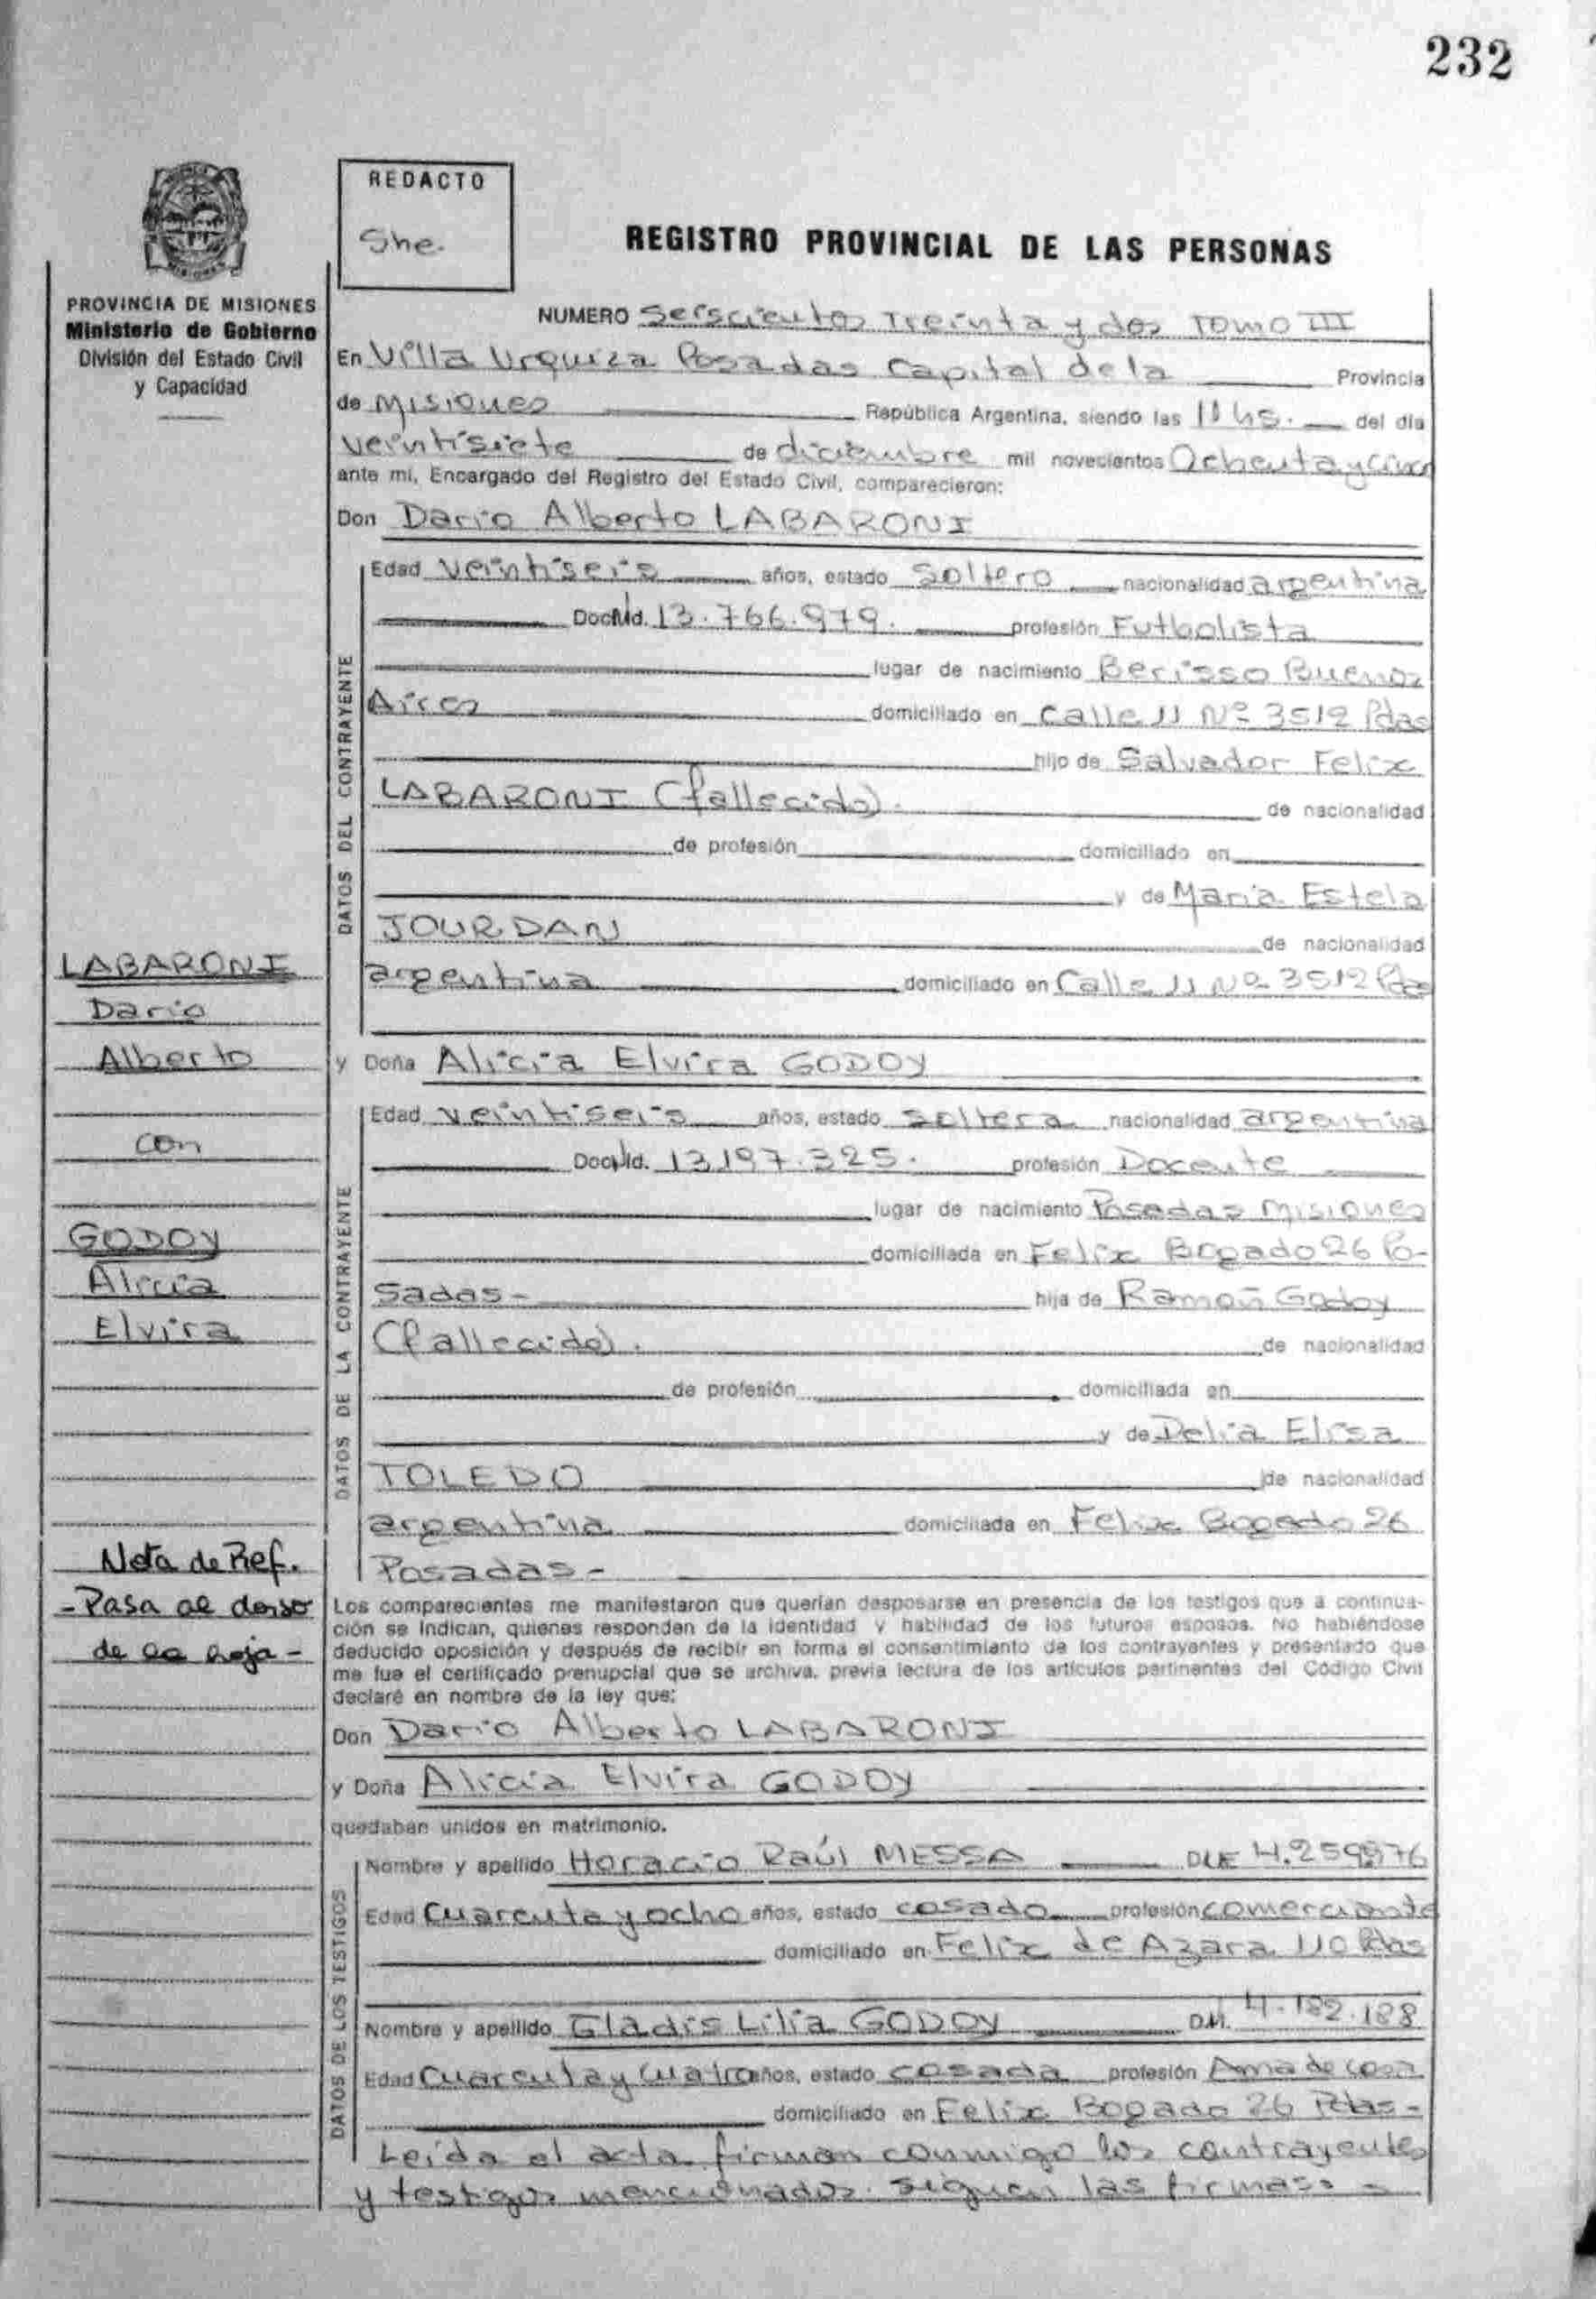 232
REDACTO
She.
REGISTRO PROVINCIAL DE LAS PERSONAS
PROVINCIA DE MISIONES
Ministerio de Gobierno
División del Estado Civil
y Capacidad
NUMERO Seiscientos Treinta y dos Tomo III
En Villa Urquiza Posadas Capital de la Provincia
de Misiones República Argentina, siendo las 11 hs. del día
veintisiete de diciembre mil novecientos Ochenta y cinco
ante mi, Encargado del Registro del Estado Civil, comparecieron:
Don Dario Alberto LABARONI
DATOS DEL CONTRAYENTE
Edad veintiseis años, estado Soltero nacionalidad argentina
Doc. Nd. 13.766.979. profesión Futbolista
lugar de nacimiento Berisso Buenos
Aires domiciliado en Calle 11 Nº 3512 Pdas
hijo de Salvador Felix
LABARONI (fallecido). de nacionalidad
de profesión domiciliado en
y de Maria Estela
JOURDAN de nacionalidad
argentina domiciliado en Calle 11 Nº 3512 Pdas
y Doña Alicia Elvira GODOY
DATOS DE LA CONTRAYENTE
Edad veintiseis años, estado soltera nacionalidad argentina
Doc. Nd. 13.197.325. profesión Docente
lugar de nacimiento Posadas Misiones
domiciliada en Felix Bogado 26 Po-
sadas- hija de Ramón Godoy
(fallecido). de nacionalidad
de profesión domiciliada en
y de Delia Elisa
TOLEDO de nacionalidad
argentina domiciliada en Felix Bogado 26
Posadas-
Los comparecientes me manifestaron que querían desposarse en presencia de los testigos que a continua-
ción se indican, quienes responden de la identidad y habilidad de los futuros esposos. No habiéndose
deducido oposición y después de recibir en forma el consentimiento de los contrayentes y presentado que
me fue el certificado prenupcial que se archiva, previa lectura de los artículos pertinentes del Código Civil
declaré en nombre de la ley que:
Don Dario Alberto LABARONI
y Doña Alicia Elvira GODOY
quedaban unidos en matrimonio.
DATOS DE LOS TESTIGOS
Nombre y apellido Horacio Raúl MESSA DLE 4.259976
Edad Cuarenta y ocho años, estado casado profesión comerciante
domiciliado en Felix de Azara 110 Pdas
Nombre y apellido Gladis Lilia GODOY DM. 4.182.188
Edad Cuarenta y cuatro años, estado casada profesión Ama de casa
domiciliado en Felix Bogado 26 Pdas-
Leida el acta firman conmigo los contrayentes
y testigos mencionados. siguen las firmas:-
LABARONI
Dario
Alberto
con
GODOY
Alicia
Elvira
Nota de Ref.
-Pasa al dorso
de la hoja-